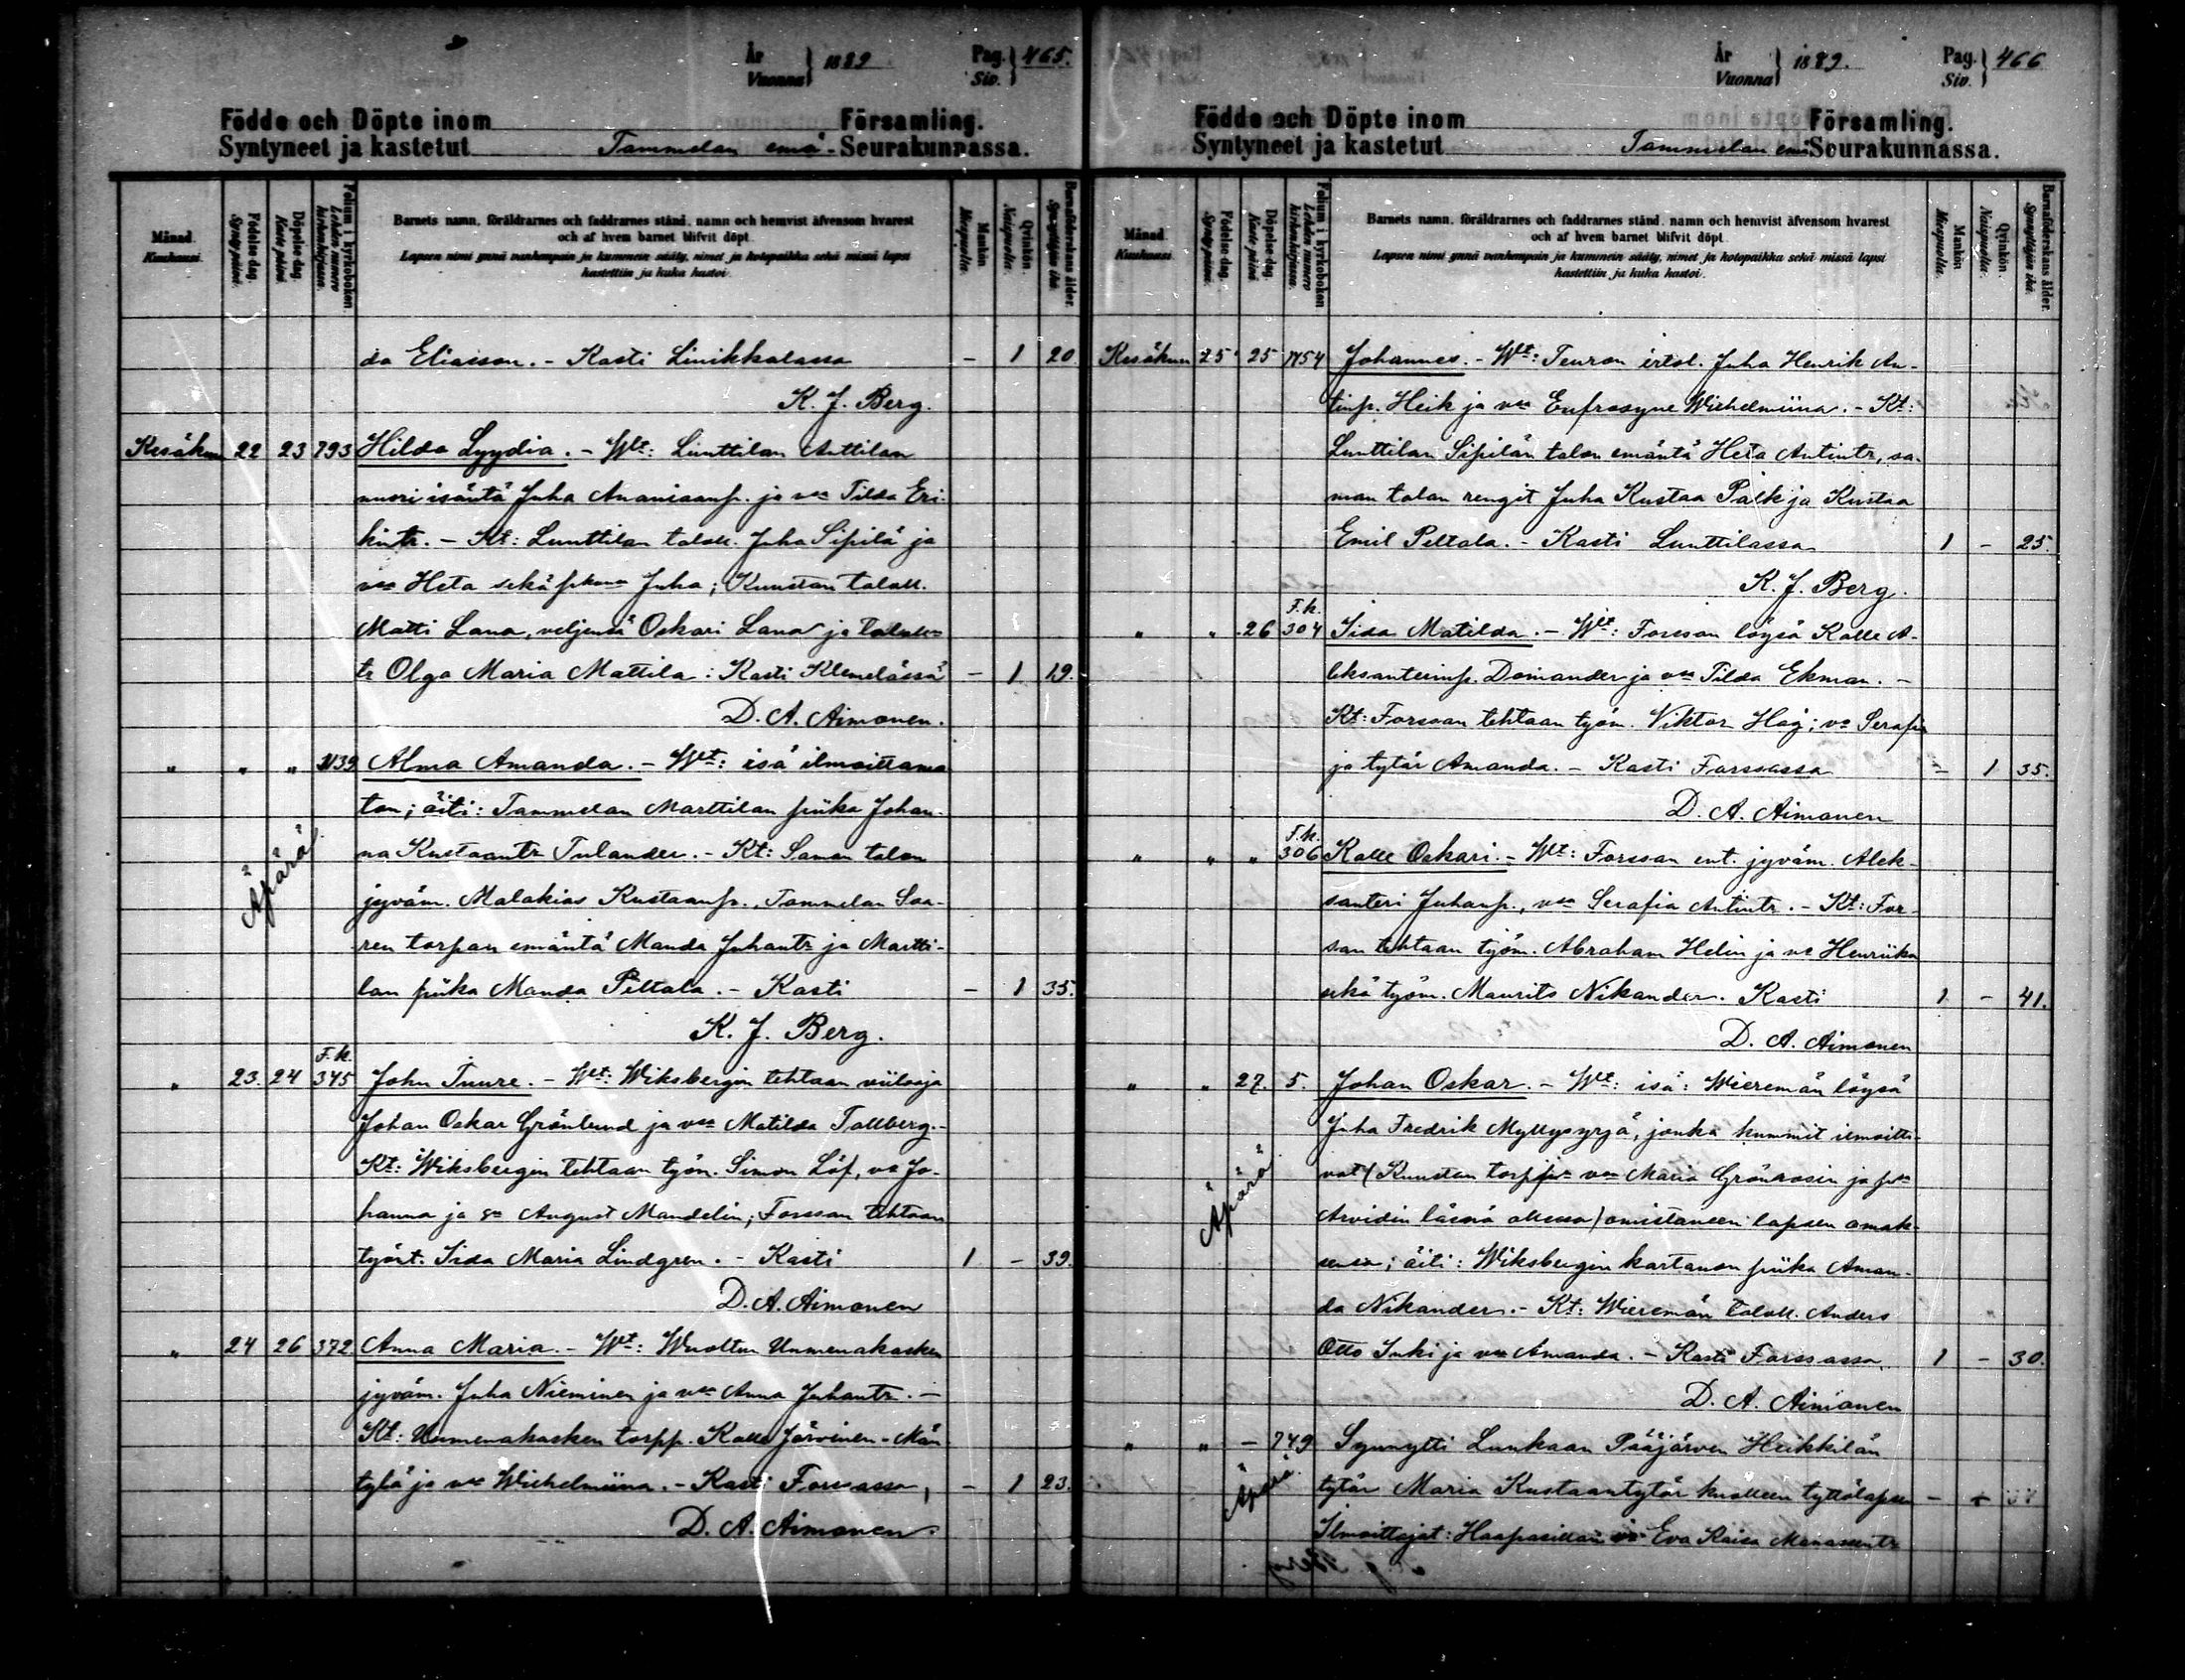 År
Vuonna } 1889
Pag.
Siv. } 465.
Födde och Döpte inom Församling.
Syntyneet ja kastetut Tammelan emä- Seurakunnassa.
Månad. Kuukausi.
Födelse dag. Syntypäivä.
Döpelse dag. Kaste päivä.
Folium i kyrkoboken Lehden numero kirkonkirjassa.
Barnets namn, föräldrarnes och faddrarnes stånd, namn och hemvist äfvensom hvarest
och af hvem barnet blifvit döpt.
Lapsen nimi ynnä vanhempain ja kummein sääty, nimet ja kotopaikka sekä missä lapsi
kastettiin ja kuka kastoi.
Mankön Miespuolia.
Qvinkön. Naispuolia.
Barnaföderskans ålder. Synnyttäjän ikä.
da Eliasson. - Kasti Linikkalassa - 1 20
K. J. Berg.
Kesäkuu 22 23 793 Hilda Lyydia. - Wt: Lunttilan Anttilan
nuori isäntä Juha Ananiaanp. ja va Tilda Eri-
kintr. - Kt: Lunttilan taloll. Juha Sipilä ja
va Heta sekä Juha; Kuustan taloll.
Matti Lana, veljensä Oskari Lana ja
tr Olga Maria Mattila: Kasti Klemelässä - 1 19.
D. A. Aimonen.
" " " 1139 Alma Amanda. - Wt: isä ilmoittama
ton; äiti: Tammelan Marttilan piika Johan-
na Kustaantr Tulander. - Kt: Saman talon
Äpärä
jyväm. Malakias Kustaanp., Tammelan Saa-
ren torpan emäntä Manda Juhantr ja Martti-
lan piika Manda Peltala. - Kasti - 1 35.
K. J. Berg.
" 23. 24 F.k. 345 John Tuure. - Wt: Wiksbergin tehtaan viilaaja
Johan Oskar Grönlund ja va Matilda Tallberg. -
Kt: Wiksbergin tehtaan työm. Simon Löf, va Jo-
hanna ja August Mandelin; Forssan tehtaan
työnt. Iida Maria Lindgren. - Kasti 1 - 39.
D. A. Aimonen
" 24 26 372 Anna Maria. - Wt: Wuoltun Ummenakasken
jyväm. Juha Nieminen ja va Anna Juhantr. -
Kt: Ummenakasken torpp. Kalle Järvinen-Män
tylä ja va Wilhelmiina. - Kasti Forssassa, - 1 23.
D. A. Aimonen.
År
Vuonna } 1889.
Pag.
Siv. } 466
Födde och Döpte inom Församling.
Syntyneet ja kastetut Tammelan emä Seurakunnassa.
Månad. Kuukausi.
Födelse dag. Syntypäivä.
Döpelse dag. Kaste päivä.
Folium i kyrkoboken Lehden numero kirkonkirjassa.
Barnets namn, föräldrarnes och faddrarnes stånd, namn och hemvist äfvensom hvarest
och af hvem barnet blifvit döpt.
Lapsen nimi ynnä vanhempain ja kummein sääty, nimet ja kotopaikka sekä missä lapsi
kastettiin ja kuka kastoi.
Mankön Miespuolia.
Qvinkön. Naispuolia.
Barnaföderskans ålder. Synnyttäjän ikä.
Kesäkuu 25 25 1154 Johannes. - Wt: Teuron irtol. Juha Henrik An-
tinp. Heik ja va Eufrosyne Wilhelmiina. - Kt:
Lunttilan Sipilän talon emäntä Heta Antintr, sa-
man talon rengit Juha Kustaa Palk ja Kustaa
Emil Peltala. - Kasti Lunttilassa 1 - 25.
K. J. Berg.
" " 26 F.k. 304 Iida Matilda. - Wt: Forssan löysä Kalle A-
leksanterinp. Domander ja va Tilda Ekman. -
Kt: Forssan tehtaan työm. Viktor Hög; va Serafia
ja tytär Amanda. - Kasti Forssassa - 1 35.
D. A. Aimonen
" " " F.k. 306 Kalle Oskari. - Wt: Forssan ent. jyväm. Alek-
santeri Juhanp., va Serafia Antintr. - Kt: Fors-
san tehtaan työm. Abraham Helin ja va Henriika
sekä työm. Maurits Nikander. Kasti 1 - 41.
D. A. Aimonen
" " 27. 5. Johan Oskar. - Wt: isä: Wieremän löysä
Juha Fredrik Myllysyrjä, jonka kummit ilmoitti-
vat (Kuustan va Maria Grönroosin ja
Äpärä
Arvidin läsnä ollessa) omistaneen lapsen omak-
sensa; äiti: Wiksbergin kartanon piika Aman-
da Nikander. - Kt: Wieremän taloll. Anders
Otto Inki ja va Amanda. - Kasti Forssassa. 1 - 30.
D. A. Aimonen
" " - 749 Synnytti Lunkaan Pääjärven Heikkilän
Äpärä
tytär Maria Kustaantytär kuolleen tyttölapsen - +
Ilmoittajat: Eva Kaisa Manassentr